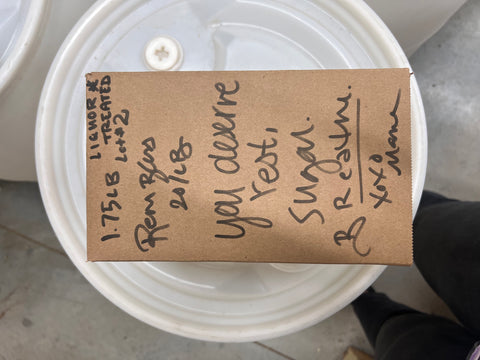 LIQUOR *
TREATED
LOT#2
1.75LB
Rem Bless
20/LB
you deserve
rest,
Sugar.
BReathe.
xoxo
Mama